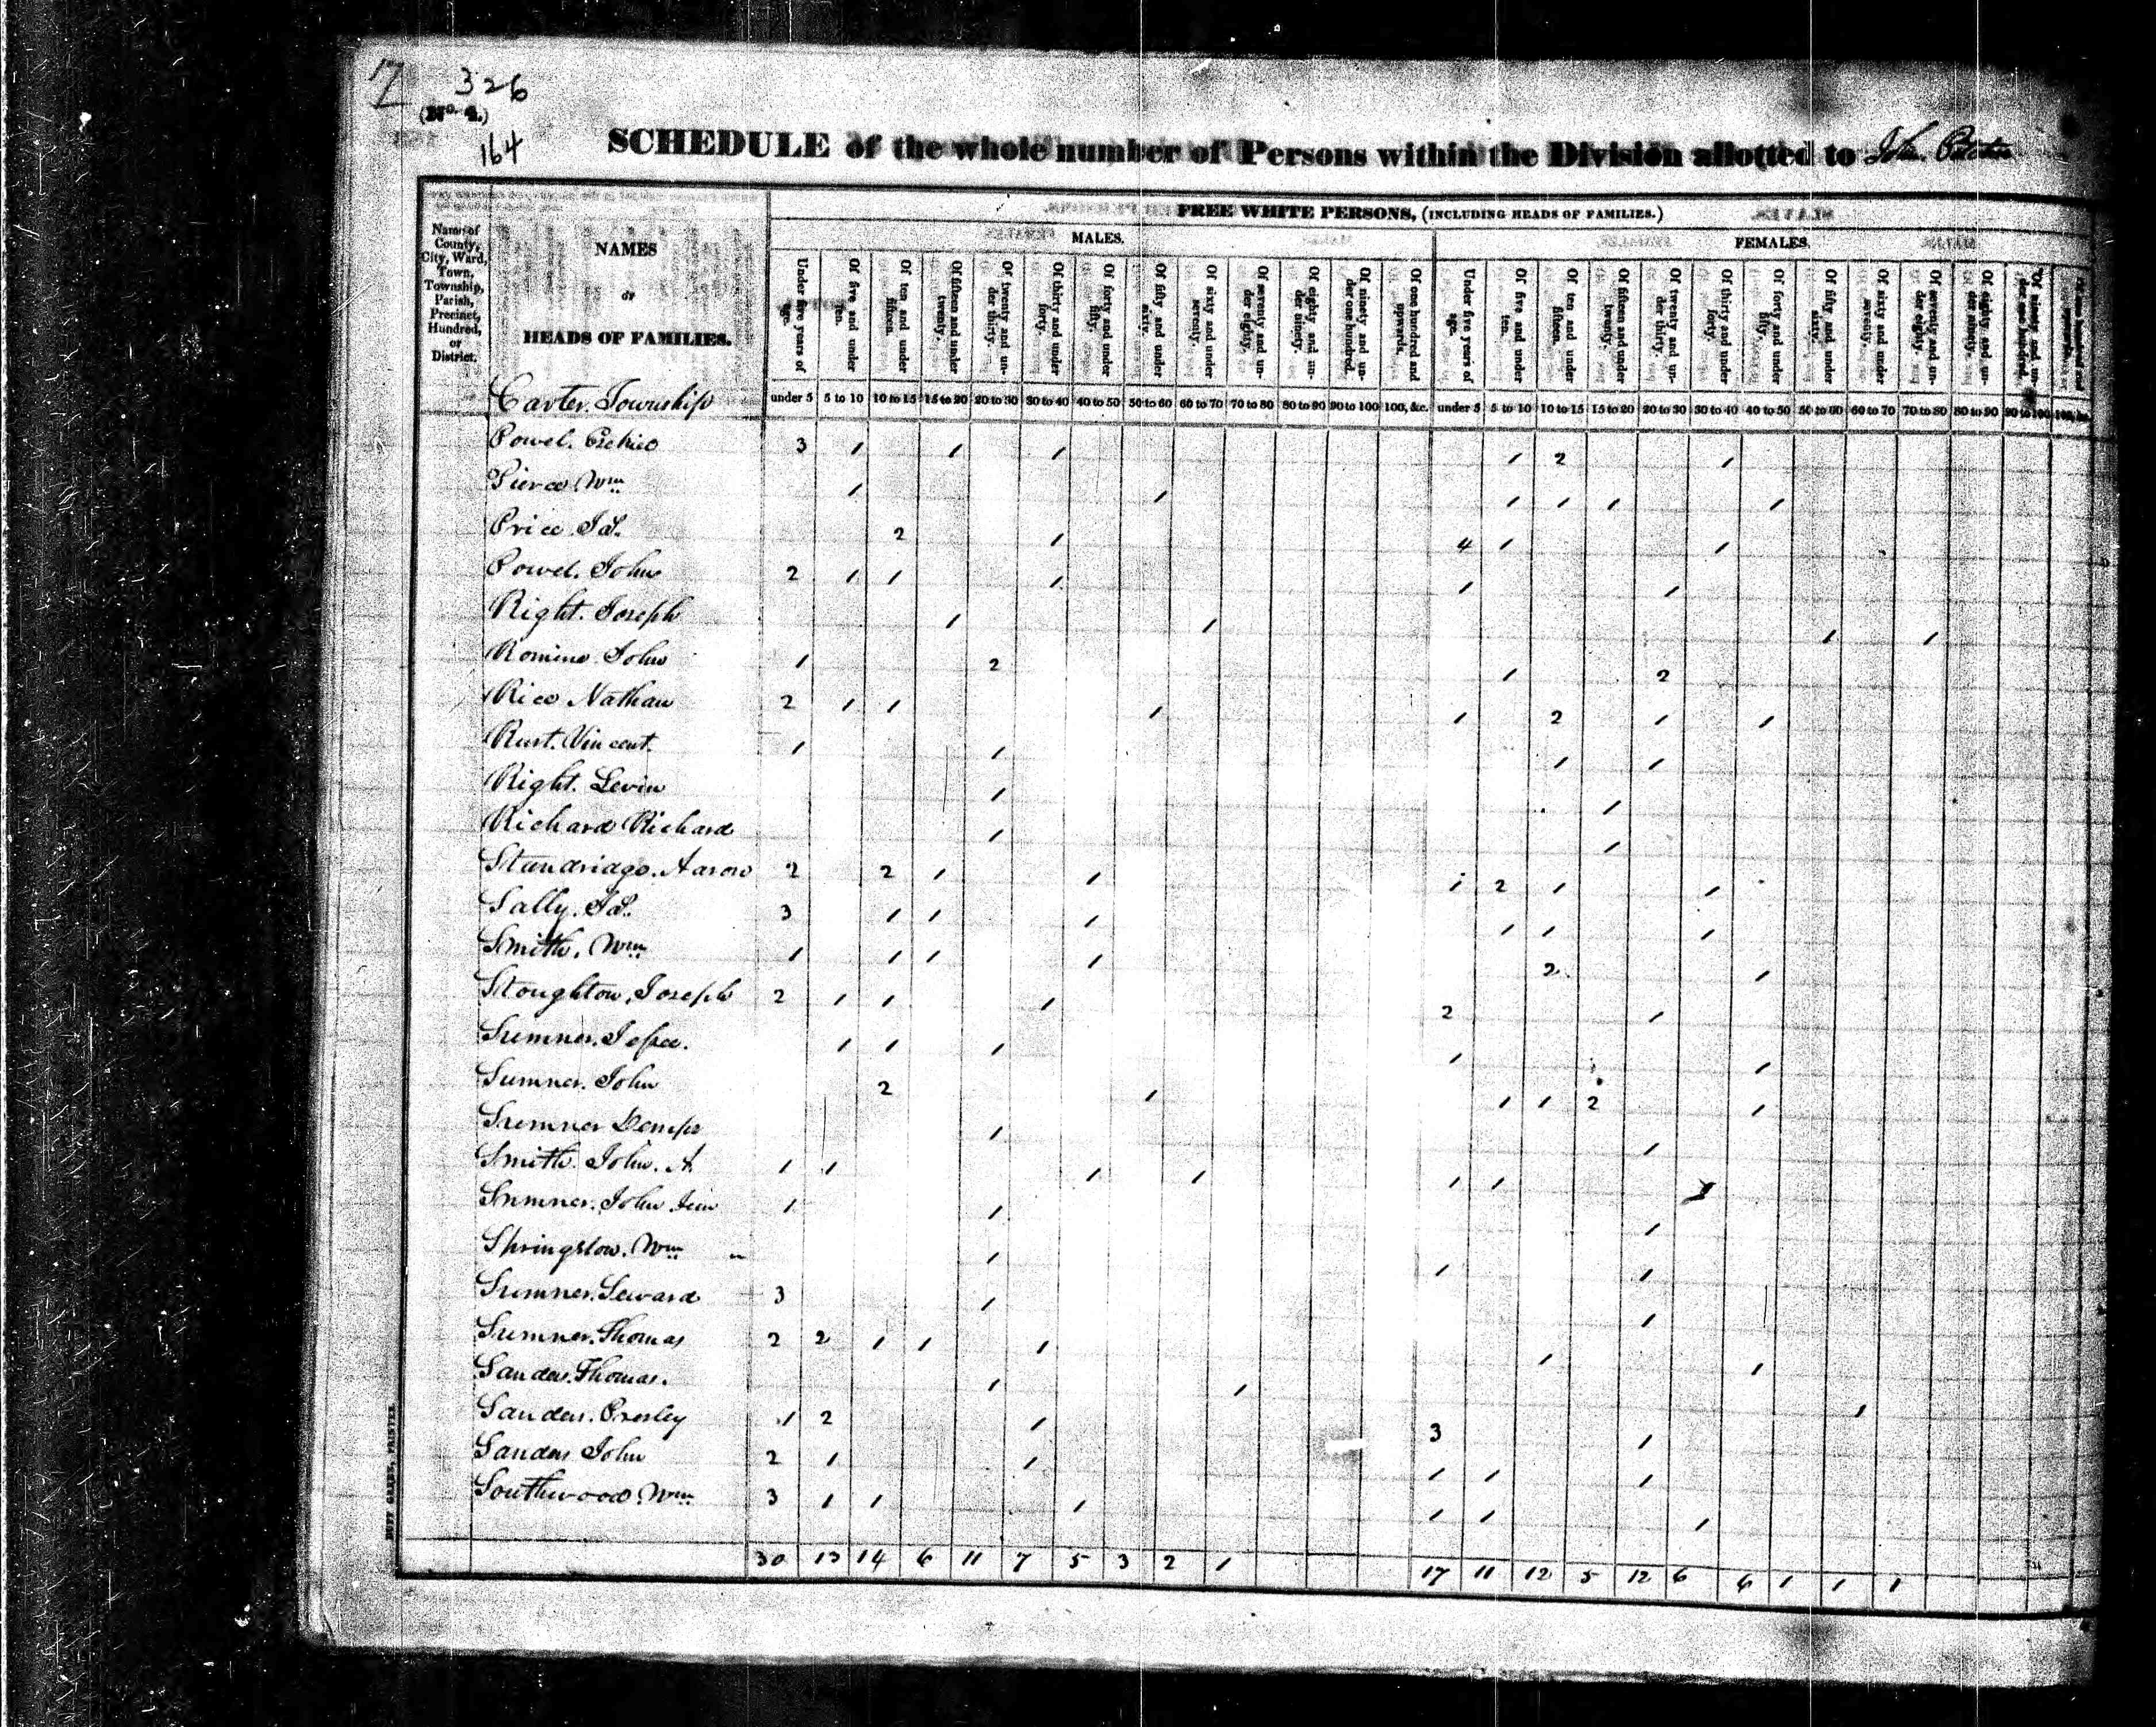 7
326
(No. 4.)
164
SCHEDULE of the whole number of Persons within the Division allotted to John
FREE WHITE PERSONS, (INCLUDING HEADS OF FAMILIES.)
MALES. FEMALES.
Name of County, City, Ward, Town, Township, Parish, Precinct, Hundred, or District.
NAMES
OF
HEADS OF FAMILIES.
Under five years of age. Of five and under ten. Of ten and under fifteen. Of fifteen and under twenty. Of twenty and under thirty. Of thirty and under forty. Of forty and under fifty. Of fifty and under sixty. Of sixty and under seventy. Of seventy and under eighty. Of eighty and under ninety. Of ninety and under one hundred. Of one hundred and upwards. Under five years of age. Of five and under ten. Of ten and under fifteen. Of fifteen and under twenty. Of twenty and under thirty. Of thirty and under forty. Of forty and under fifty. Of fifty and under sixty. Of sixty and under seventy. Of seventy and under eighty. Of eighty and under ninety. Of ninety and under one hundred. Of one hundred and upwards.
Carter Township under 5 5 to 10 10 to 15 15 to 20 20 to 30 30 to 40 40 to 50 50 to 60 60 to 70 70 to 80 80 to 90 90 to 100 100, &c. under 5 5 to 10 10 to 15 15 to 20 20 to 30 30 to 40 40 to 50 50 to 60 60 to 70 70 to 80 80 to 90 90 to 100 100, &c.
Powel. 3 1 1 1 1 2 1
Pierce Wm 1 1 1 1 1 1
Price Jas. 2 1 4 1 1
Powel. John 2 1 1 1 1 1
Right. Joseph 1 1 1 1
Romine John 1 2 1 2
Rice Nathan 2 1 1 1 1 2 1 1
Rust. Vincent. 1 1 1 1
Right. Levin 1 1
Richard Richard 1 1
Standridge. Aaron 2 2 1 1 1 2 1 1
Sally. Jas. 3 1 1 1 1 1 1
Smith. Wm 1 1 1 1 2 1
Stoughton, Joseph 2 1 1 1 2 1
Sumner. Jesse. 1 1 1 1 1
Sumner. John 2 1 1 1 2 1
Sumner 1 1
Smith. John. A. 1 1 1 1 1 1
Sumner. John 1 1 1
Springston. Wm 1 1 1
Sumner. Seward 3 1 1
Sumner. Thomas 2 2 1 1 1 1 1
Sanders. Thomas. 1 1 1
Sanders. Presley 1 2 1 3 1
Sanders John 2 1 1 1 1 1
Southwood. Wm 3 1 1 1 1 1 1
30 13 14 6 11 7 5 3 2 1 17 11 12 5 12 6 6 1 1 1
DUFF GREEN, PRINTER.